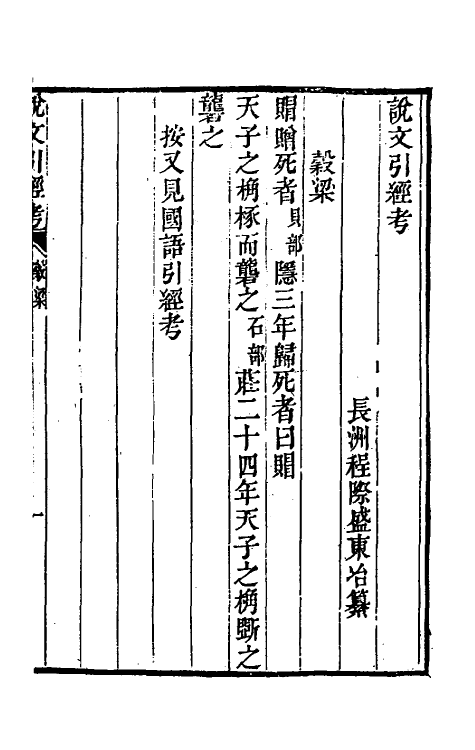 說文引經考
長洲程際盛東冶纂
穀梁
賵贈死者貝部隱三年歸死者曰賵
天子之桷椓而礱之石部莊二十四年天子之桷斲之
礱之
按又見國語引經考
說文引經考
穀梁
一